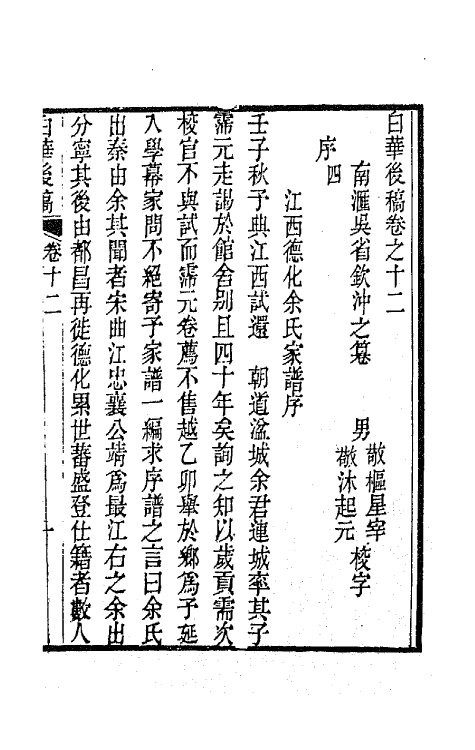 白華後稿卷之十二
南滙吳省欽沖之纂　男敬樞星宰敬沐起元挍字
序四
江西德化余氏家譜序
壬子秋予典江西試還　朝道湓城余君連城率其子
霈元走謁於館舍别且四十年矣詢之知以歲貢需次
校官不與試而霈元卷薦不售越乙卯舉於鄉爲予延
入學幕家問不絕寄予家譜一編求序譜之言曰余氏
出秦由余其聞者宋曲江忠襄公靖爲最江右之余出
分寧其後由都昌再徙德化累世蕃盛登仕籍者數人
白華後稿　卷十二　一